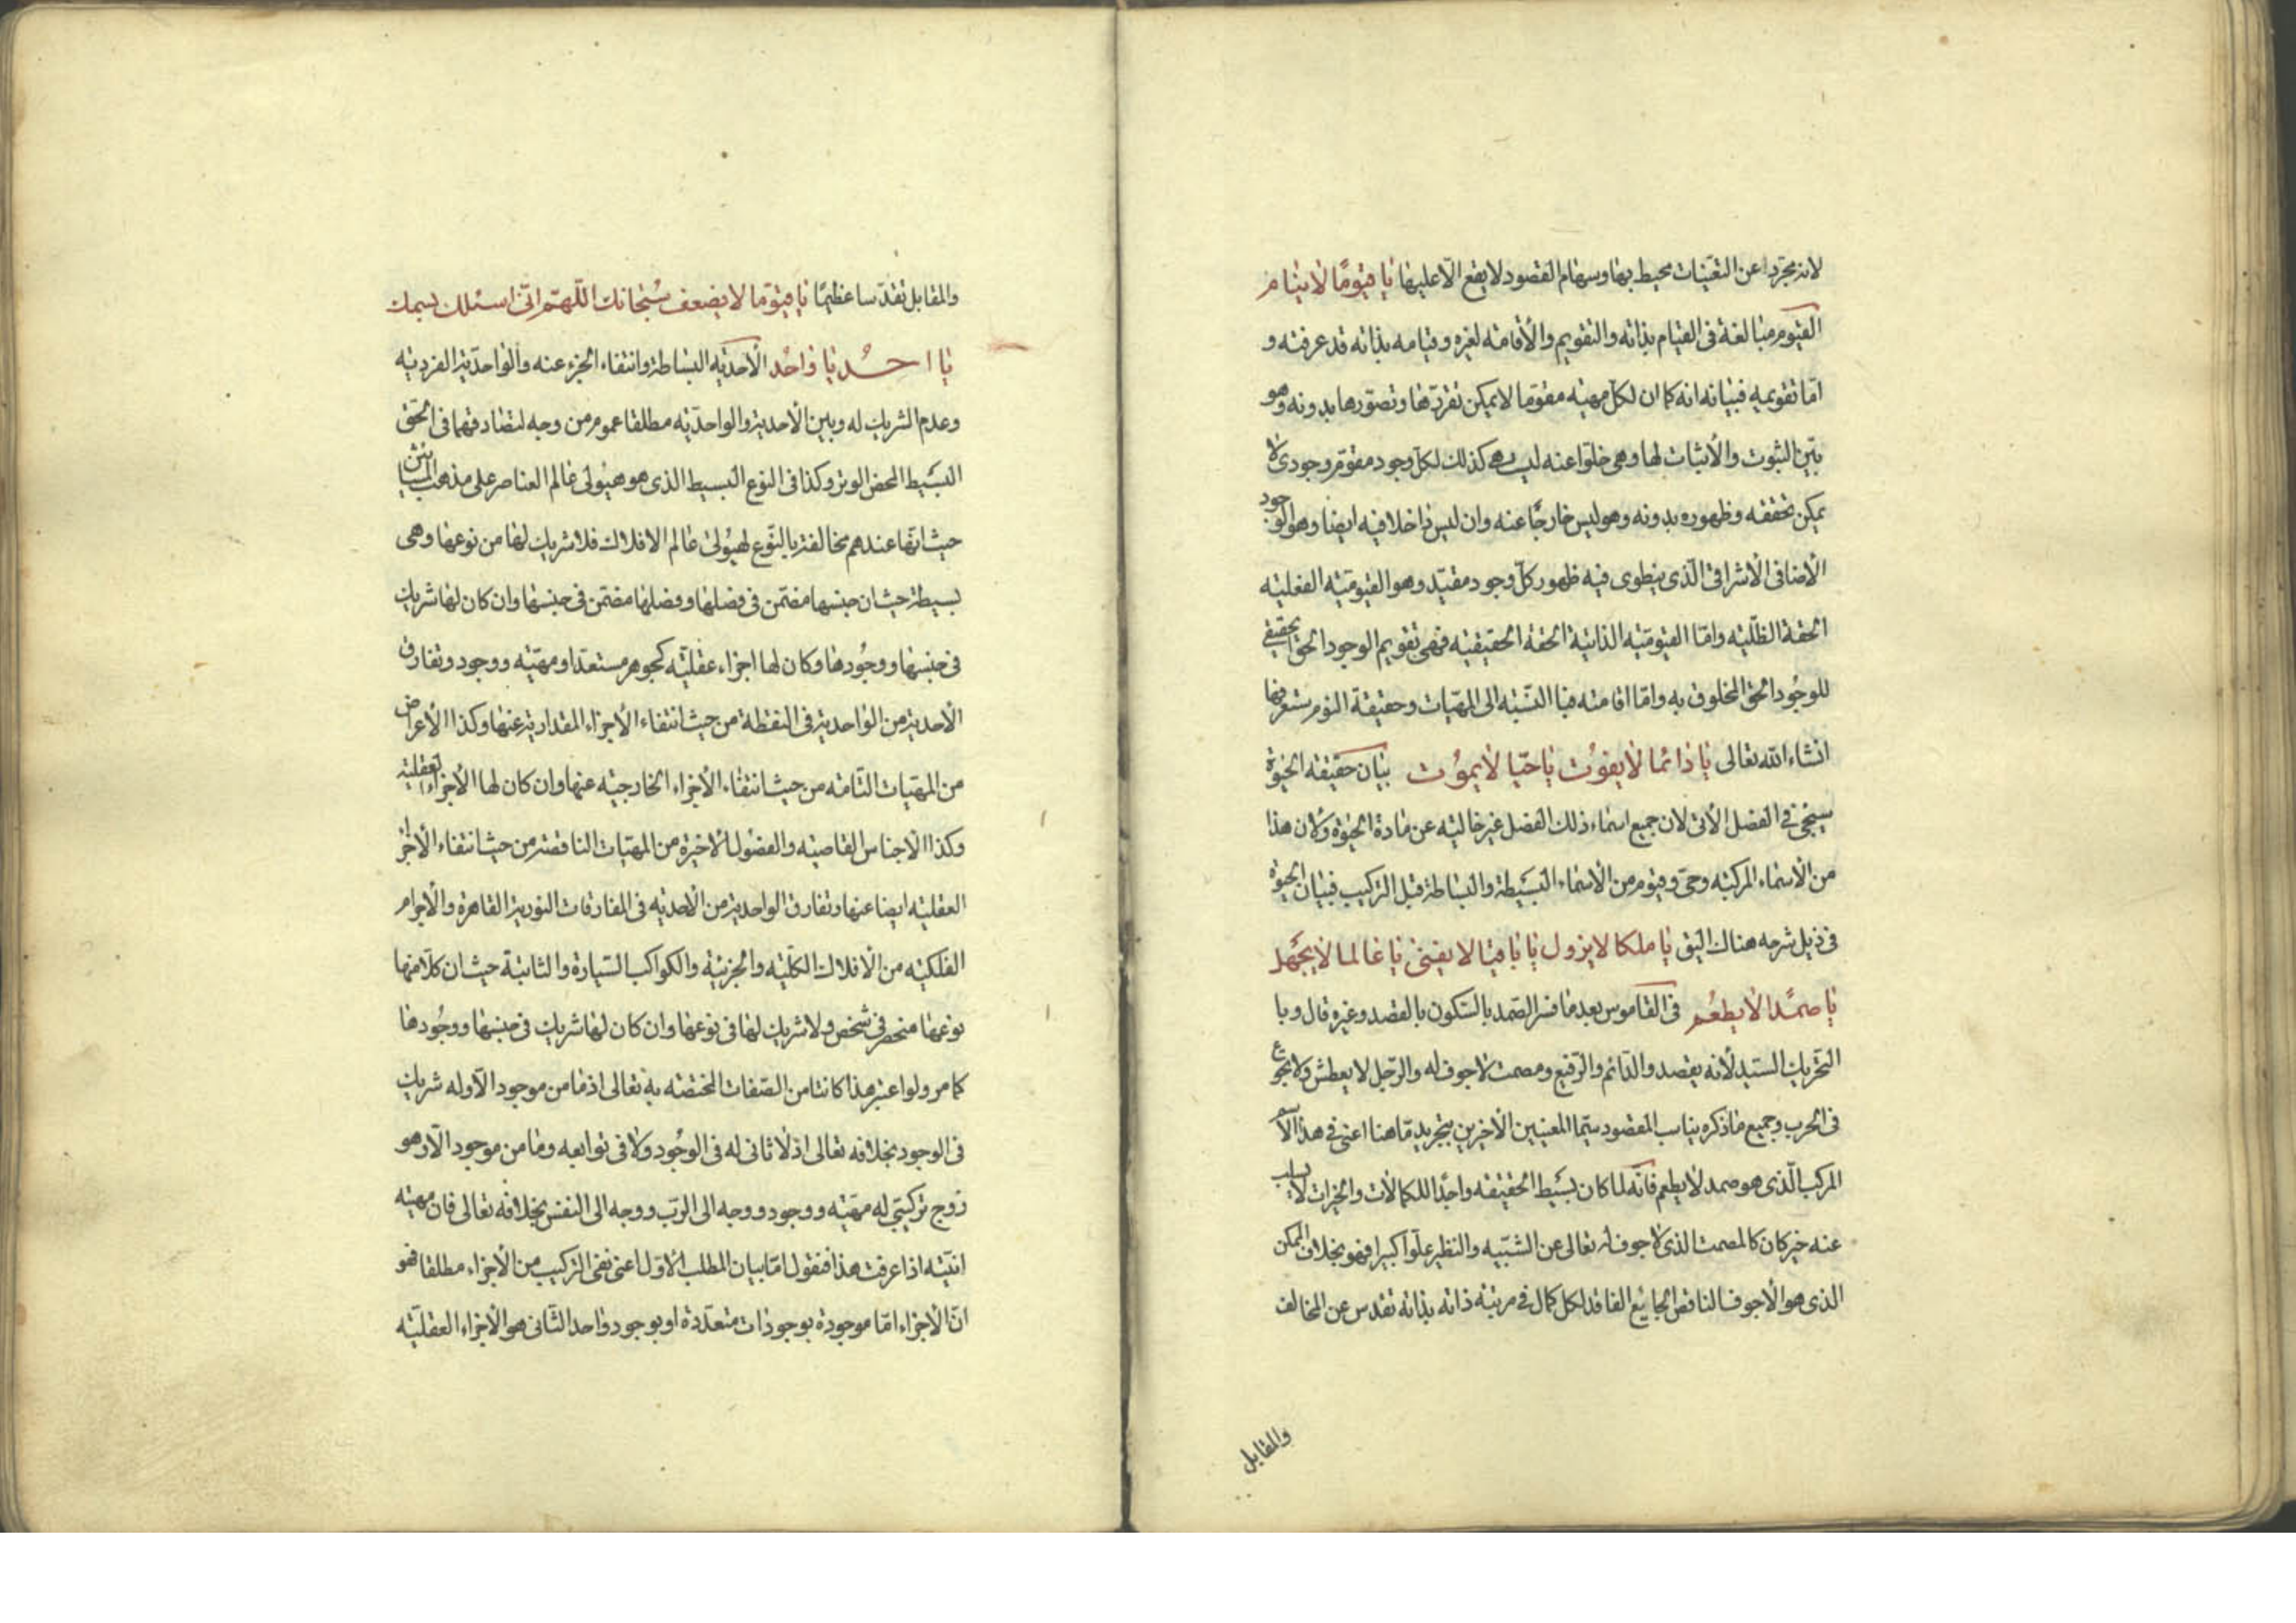 لانه مجردا عن التعينات محيط بها وسهام القصود لا يقع الا عليها يا قيوما لا ينام
القيوم مبالغة فى القيام بذاته والتقويم والاقامة لغيره وقيامه بذاته قد عرفته و
اما تقويمه فبيانه انه كما ان لكل مهية مقوما لا يمكن تقررها وتصورها بدونه وهو
بين الثبوت والاثبات لها وهى خلوا عنه ليست هى كذلك لكل وجود مقوم وجودى لا
يمكن تحققه وظهوره بدونه وهو ليس خارجا عنه وان ليس داخلا فيه ايضا وهو الوجود
الاضافى الاشراقى الذى ينطوى فيه ظهور كل وجود مقيد وهو القيومية الفعلية
الحقة الظلية واما القيومية الذاتية الحقة الحقيقية فهى تقويم الوجود الحق الحقيقى
للوجود الحق المخلوق به واما اقامته فبالنسبة الى المهيات وحقيقة النوم ستعرفها
انشاء الله تعالى يا دائما لا يفوت يا حيا لا يموت بيان حقيقة الحيوة
سيجئ فى الفصل الآتى لان جميع اسماء ذلك الفصل غير خالية عن مادة الحيوة ولان هذا
من الاسماء المركبة وحى وقيوم من الاسماء البسيطة والبساطة قبل التركيب فبيان الحيوة
فى ذيل شرحه هناك اليق يا ملكا لا يزول يا باقيا لا يفنى يا عالما لا يجهل
يا صمدا لا يطعم فى القاموس بعد ما فسر الصمد بالسكون بالقصد وغيره قال وبا
التحريك السيد لانه يقصد والدائم والرفيع ومصمت لا جوف له والرجل لا يعطش ولا يجوع
فى الحرب وجميع ما ذكره يناسب المقصود سيما المعنيين الاخيرين بتجريد ما هنا اعنى فى هذا الاسم
المركب الذى هو صمد لا يطعم فانه لما كان بسيط الحقيقة واجدا للكمالات والخيرات لا يسلب
عنه خير كان كالمصمت الذى لا جوف له تعالى عن الشبيه والنظير علوا كبيرا فهو بخلاف الممكن
الذى هو الاجوف الناقص الجايع الفاقد لكل كمال فى مرتبة ذاته بذاته تقدس عن المخالف
والمقابل
والمقابل تقدسا عظيما يا قيوما لا يضعف سبحانك اللهم انى اسئلك بسمك
يا احد يا واحد الاحدية البساطة وانتفاء الجزء عنه والواحدية الفردية
وعدم الشريك له وبين الاحدية والواحدية مطلقا عموم من وجه لتصادقهما فى الحق
البسيط المحض الوتر وكذا فى النوع البسيط الذى هو هيولى عالم العناصر على مذهب المشائين
حيث انها عندهم مخالفة بالنوع لهيولى عالم الافلاك فلا شريك لها من نوعها وهى
بسيطة حيث ان جنسها مضمن فى فصلها وفصلها مضمن فى جنسها وان كان لها شريك
فى جنسها ووجودها وكان لها اجزاء عقلية كجوهر مستعد او مهية ووجود وتفارق
الاحدية من الواحدية فى النقطة من حيث انتفاء الاجزاء المقدارية عنها وكذا الاعراض
من المهيات التامة من حيث انتفاء الاجزاء الخارجية عنها وان كان لها الاجزاء العقلية
وكذا الاجناس القاصية والفصول الاخيرة من المهيات الناقصة من حيث انتفاء الاجزاء
العقلية ايضا عنها وتفارق الواحدية من الاحدية فى المفارقات النورية القاهرة والاجرام
الفلكية من الافلاك الكلية والجزئية والكواكب السيارة والثابتة حيث ان كلا منها
نوعها منحصر فى شخص ولا شريك لها فى نوعها وان كان لها شريك فى جنسها ووجودها
كما مر ولو اعتبر هذا كانتا من الصفات المختصة به تعالى اذ ما من موجود الا وله شريك
فى الوجود بخلافه تعالى اذ لا ثانى له فى الوجود ولا فى توابعه وما من موجود الا وهو
زوج تركيبى له مهية ووجود ووجه الى الرب ووجه الى النفس بخلافه تعالى فان مهيته
انيته اذا عرفت هذا فنقول اما بيان المطلب الاول اعنى نفى التركيب من الاجزاء مطلقا فهو
ان الاجزاء اما موجودة بوجودات متعددة او بوجود واحد الثانى هو الاجزاء العقلية